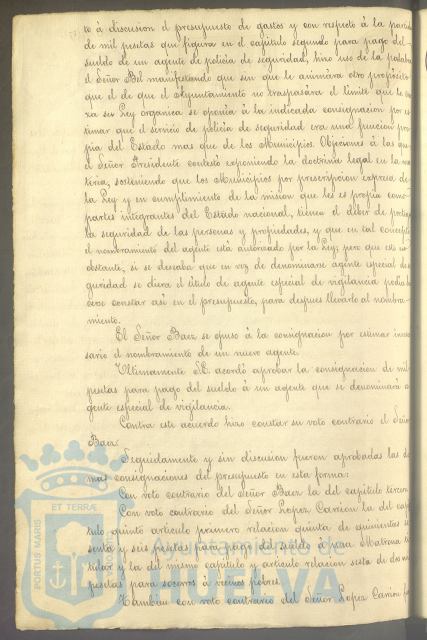 to á discusion el presupuesto de gastos y con respecto á la partida
de mil pesetas que figura en el capítulo segundo para pago del
sueldo de un agente de policia de seguridad, hizo uso de la palabra
el Señor Bel manifestando que sin que le animára otro propósito
que el de que el Ayuntamiento no traspasára el límite que le
ra su Ley orgánica se oponía á la indicada consignacion por es
timar que el servicio de policia de seguridad era una funcion pro
pia del Estado mas que de los Municipios. Objeciones á las que
el Señor Presidente contestó exponiendo la doctrina legal en la ma
teria, sosteniendo que los Municipios por prescripcion expresa de
la Ley y en cumplimiento de la mision que les es propia como
partes integrantes del Estado nacional, tienen el deber de
la seguridad de las personas y propiedades, y que en tal concepto
el nombramiento del agente está autorizado por la Ley; pero que esto no
obstante, si se deseaba que en vez de denominarse agente especial de se
guridad se diera el título de agente especial de vigilancia podía
cerse constar así en el presupuesto, para despues llevarlo al nombra-
miento.
El Señor Baez se opuso á la consignacion por estimar inne
sario el nombramiento de un nuevo agente.
Ultimamente S.E. acordó aprobar la consignacion de mil
pesetas para pago del sueldo á un agente que se denominará a
gente especial de vigilancia.
Contra este acuerdo hizo constar su voto contrario el Señor
Baez.
Seguidamente y sin discusion fueron aprobadas las de
mas consignaciones del presupuesto en esta forma:
Con voto contrario del Señor Baez la del capítulo tercero
Con voto contrario del Señor Lopez Carrion la del capí
tulo quinto artículo primero relacion quinta de quinientas se
senta y seis pesetas para pago del sueldo á una Matrona ti
tular y la del mismo capítulo y artículo relacion sexta de
pesetas para socorros á vecinos pobres.
Tambien con voto contrario del Señor Lopez Carrion
PORTUS MARIS
ET TERRAE
Ayuntamiento de
HUELVA